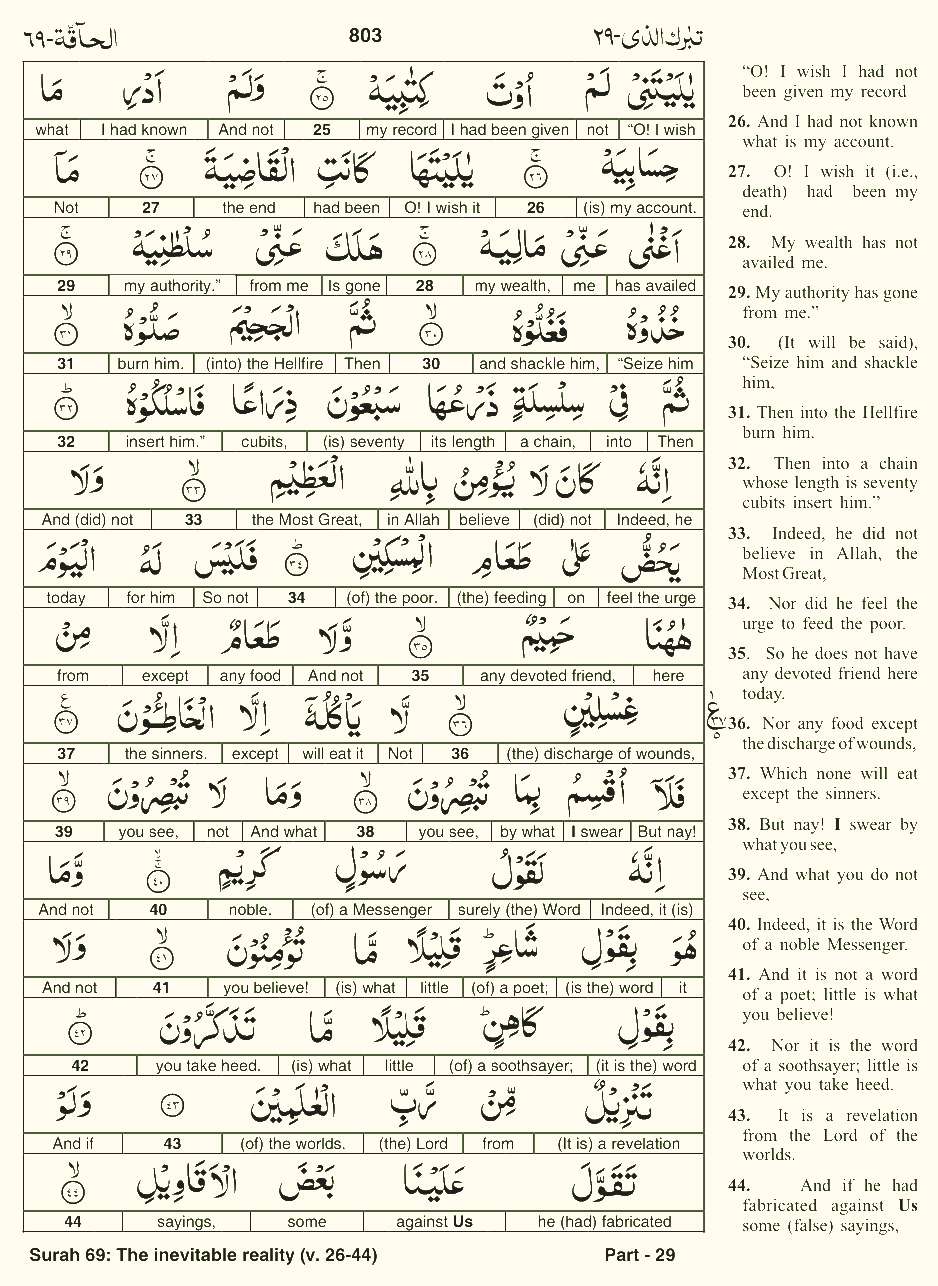 الحآقّة-٦٩ 803 تبٰرك الذی-٢٩
يٰلَيْتَنِيْ لَمْ اُوْتَ كِتٰبِيَهْ ۚ ﴿٢٥﴾ وَلَمْ اَدْرِ مَا
“O! I wish not I had been given my record 25 And not I had known what
حِسَابِيَهْ ۚ ﴿٢٦﴾ يٰلَيْتَهَا كَانَتِ الْقَاضِيَةَ ۚ ﴿٢٧﴾ مَاۤ
(is) my account. 26 O! I wish it had been the end 27 Not
اَغْنٰى عَنِّيْ مَالِيَهْ ۚ ﴿٢٨﴾ هَلَكَ عَنِّيْ سُلْطٰنِيَهْ ۚ ﴿٢٩﴾
has availed me my wealth, 28 Is gone from me my authority.” 29
خُذُوْهُ فَغُلُّوْهُ ۙ ﴿٣٠﴾ ثُمَّ الْجَحِيْمَ صَلُّوْهُ ۙ ﴿٣١﴾
“Seize him and shackle him, 30 Then (into) the Hellfire burn him. 31
ثُمَّ فِيْ سِلْسِلَةٍ ذَرْعُهَا سَبْعُوْنَ ذِرَاعًا فَاسْلُكُوْهُ ؕ ﴿٣٢﴾
Then into a chain, its length (is) seventy cubits, insert him.” 32
اِنَّهٗ كَانَ لَا يُؤْمِنُ بِاللّٰهِ الْعَظِيْمِ ۙ ﴿٣٣﴾ وَلَا
Indeed, he (did) not believe in Allah, the Most Great, 33 And (did) not
يَحُضُّ عَلٰى طَعَامِ الْمِسْكِيْنِ ؕ ﴿٣٤﴾ فَلَيْسَ لَهُ الْيَوْمَ
feel the urge on (the) feeding (of) the poor. 34 So not for him today
هٰهُنَا حَمِيْمٌ ۙ ﴿٣٥﴾ وَّلَا طَعَامٌ اِلَّا مِنْ
here any devoted friend, 35 And not any food except from
غِسْلِيْنٍ ۙ ﴿٣٦﴾ لَّا يَاْكُلُهٗۤ اِلَّا الْخَاطِـُٔوْنَ ﴿٣٧﴾
(the) discharge of wounds, 36 Not will eat it except the sinners. 37
فَلَاۤ اُقْسِمُ بِمَا تُبْصِرُوْنَ ۙ ﴿٣٨﴾ وَمَا لَا تُبْصِرُوْنَ ۙ ﴿٣٩﴾
But nay! I swear by what you see, 38 And what not you see, 39
اِنَّهٗ لَقَوْلُ رَسُوْلٍ كَرِيْمٍ ۚۙ ﴿٤٠﴾ وَّمَا
Indeed, it (is) surely (the) Word (of) a Messenger noble. 40 And not
هُوَ بِقَوْلِ شَاعِرٍ ؕ قَلِيْلًا مَّا تُؤْمِنُوْنَ ۙ ﴿٤١﴾ وَلَا
it (is the) word (of) a poet; little (is) what you believe! 41 And not
بِقَوْلِ كَاهِنٍ ؕ قَلِيْلًا مَّا تَذَكَّرُوْنَ ؕ ﴿٤٢﴾
(it is the) word (of) a soothsayer; little (is) what you take heed. 42
تَنْزِيْلٌ مِّنْ رَّبِّ الْعٰلَمِيْنَ ﴿٤٣﴾ وَلَوْ
(It is) a revelation from (the) Lord (of) the worlds. 43 And if
تَقَوَّلَ عَلَيْنَا بَعْضَ الْاَقَاوِيْلِ ۙ ﴿٤٤﴾
he (had) fabricated against Us some sayings, 44
“O! I wish I had not
been given my record
26. And I had not known
what is my account.
27. O! I wish it (i.e.,
death) had been my
end.
28. My wealth has not
availed me.
29. My authority has gone
from me.”
30. (It will be said),
“Seize him and shackle
him,
31. Then into the Hellfire
burn him.
32. Then into a chain
whose length is seventy
cubits insert him.”
33. Indeed, he did not
believe in Allah, the
Most Great,
34. Nor did he feel the
urge to feed the poor.
35. So he does not have
any devoted friend here
today.
36. Nor any food except
the discharge of wounds,
37. Which none will eat
except the sinners.
38. But nay! I swear by
what you see,
39. And what you do not
see,
40. Indeed, it is the Word
of a noble Messenger.
41. And it is not a word
of a poet; little is what
you believe!
42. Nor it is the word
of a soothsayer; little is
what you take heed.
43. It is a revelation
from the Lord of the
worlds.
44. And if he had
fabricated against Us
some (false) sayings,
Surah 69: The inevitable reality (v. 26-44) Part - 29